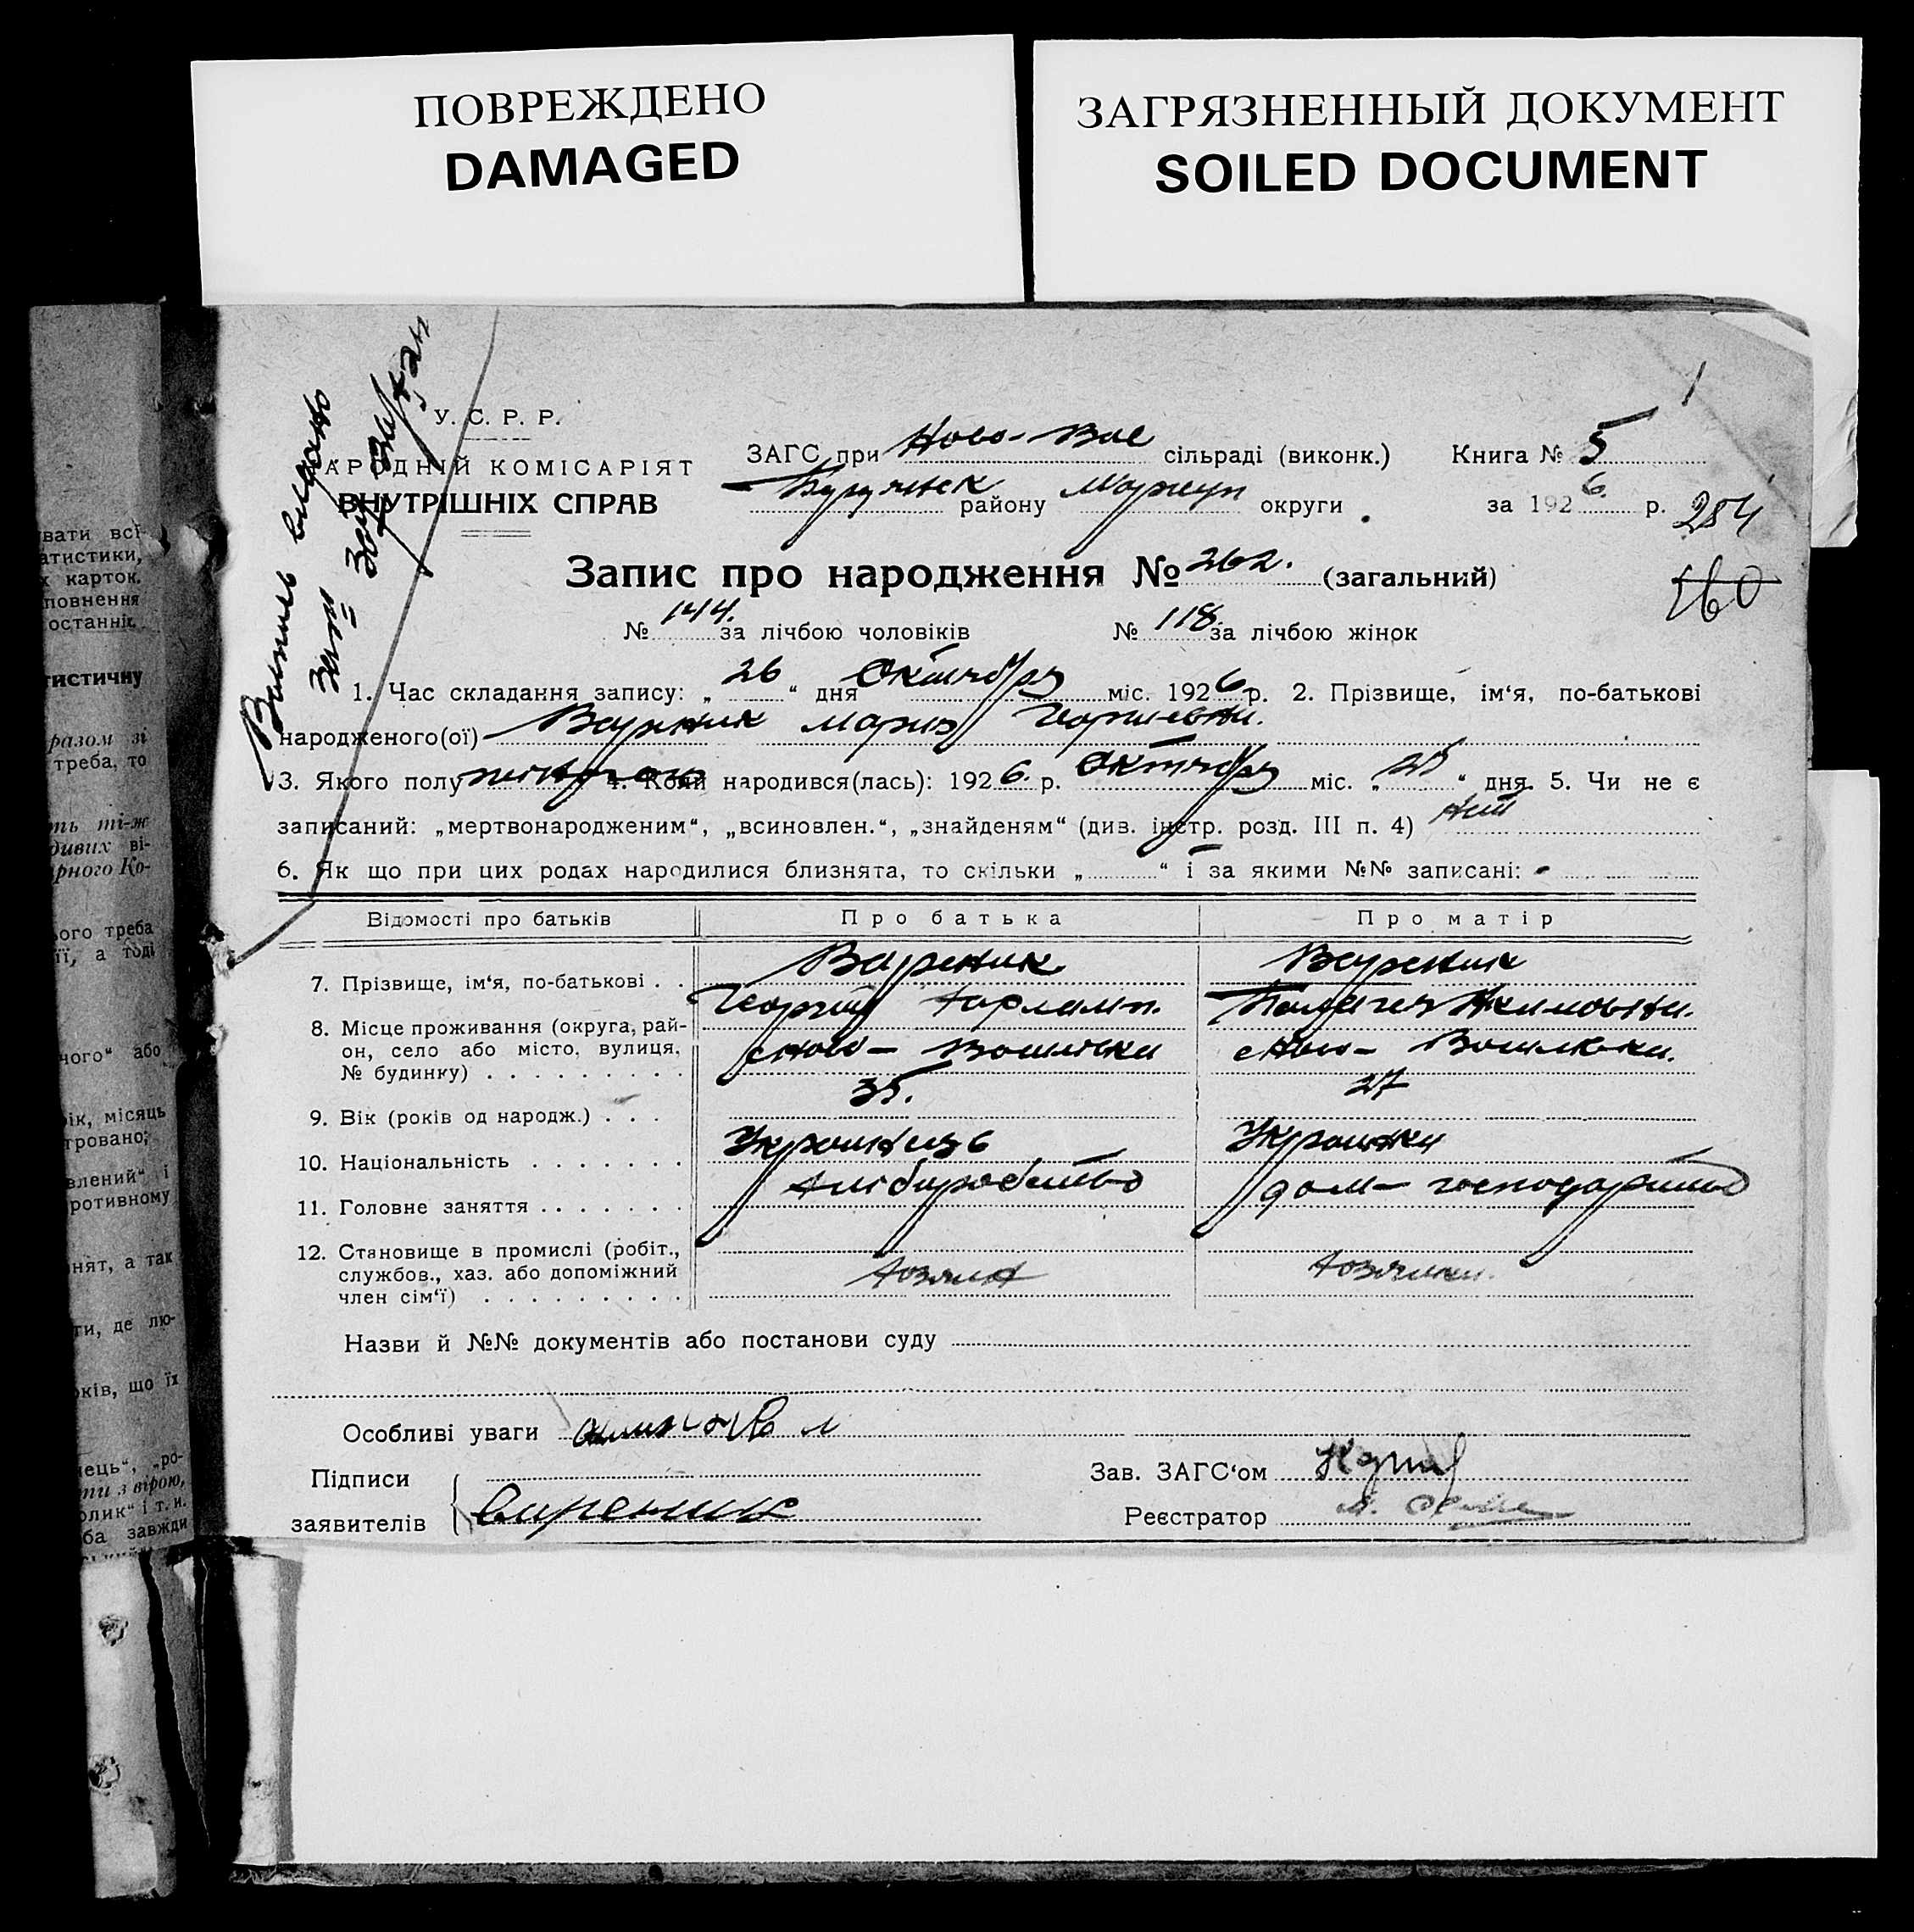 ПОВРЕЖДЕНО
DAMAGED
ЗАГРЯЗНЕННЫЙ ДОКУМЕНТ
SOILED DOCUMENT
вати всі
атистики,
х карток.
повнення
останніх.
тистичну
разом зі
треба, то
ть ті-ж
дивих ві-
рного Ко-
ого треба
її, а тоді
ного“ або
рік, місяць
тровано;
влений“ і
ротивному
нят, а так
ти, де лю-
ків, що їх
нець“, „ро-
ти з вірою,
олик“ і т. и.
ба завжди
Выпись выдано
У. С. Р. Р.
АРОДНІЙ КОМІСАРІЯТ
ВНУТРІШНІХ СПРАВ
ЗАГС при Ново-Вас сільраді (виконк.) Книга № 5
району Мариуп округи за 1926 р. 284
Запис про народження № 262. (загальний)
560
№ 144. за лічбою чоловіків № 118. за лічбою жінок
1. Час складання запису: „26“ дня Октября міс. 1926 р. 2. Прізвище, ім‘я, по-батькові
народженого(ої) Вареник Мария Георгиевна.
3. Якого полу 4. Коли народився(лась): 1926. р. Октября міс. „25“ дня. 5. Чи не є
записаний: „мертвонародженим“, „всиновлен.“, „знайденям“ (див. інстр. розд. III п. 4) нет
6. Як що при цих родах народилися близнята, то скільки „ “ і за якими №№ записані: -
Відомості про батьків Про батька Про матір
7. Прізвище, ім‘я, по-батькові . . Вареник Вареник
Георгий Харламп. Акимовна.
8. Місце проживання (округа, рай-
он, село або місто, вулиця, Ново-Василівка Ново-Василівка.
№ будинку) . . . . . . . . .
9. Вік (років од народж.) . . . 35. 27
10. Національність . . . . . . . Украинець Украинка
11. Головне заняття . . . . . . . хліборобство дом-господарство
12. Становище в промислі (робіт.,
службов., хаз. або допоміжний хозяин хозяйка.
член сім‘ї) . . . . . . . . .
Назви й №№ документів або постанови суду
Особливі уваги
Підписи
заявителів Вареник
Зав. ЗАГС‘ом
Реєстратор